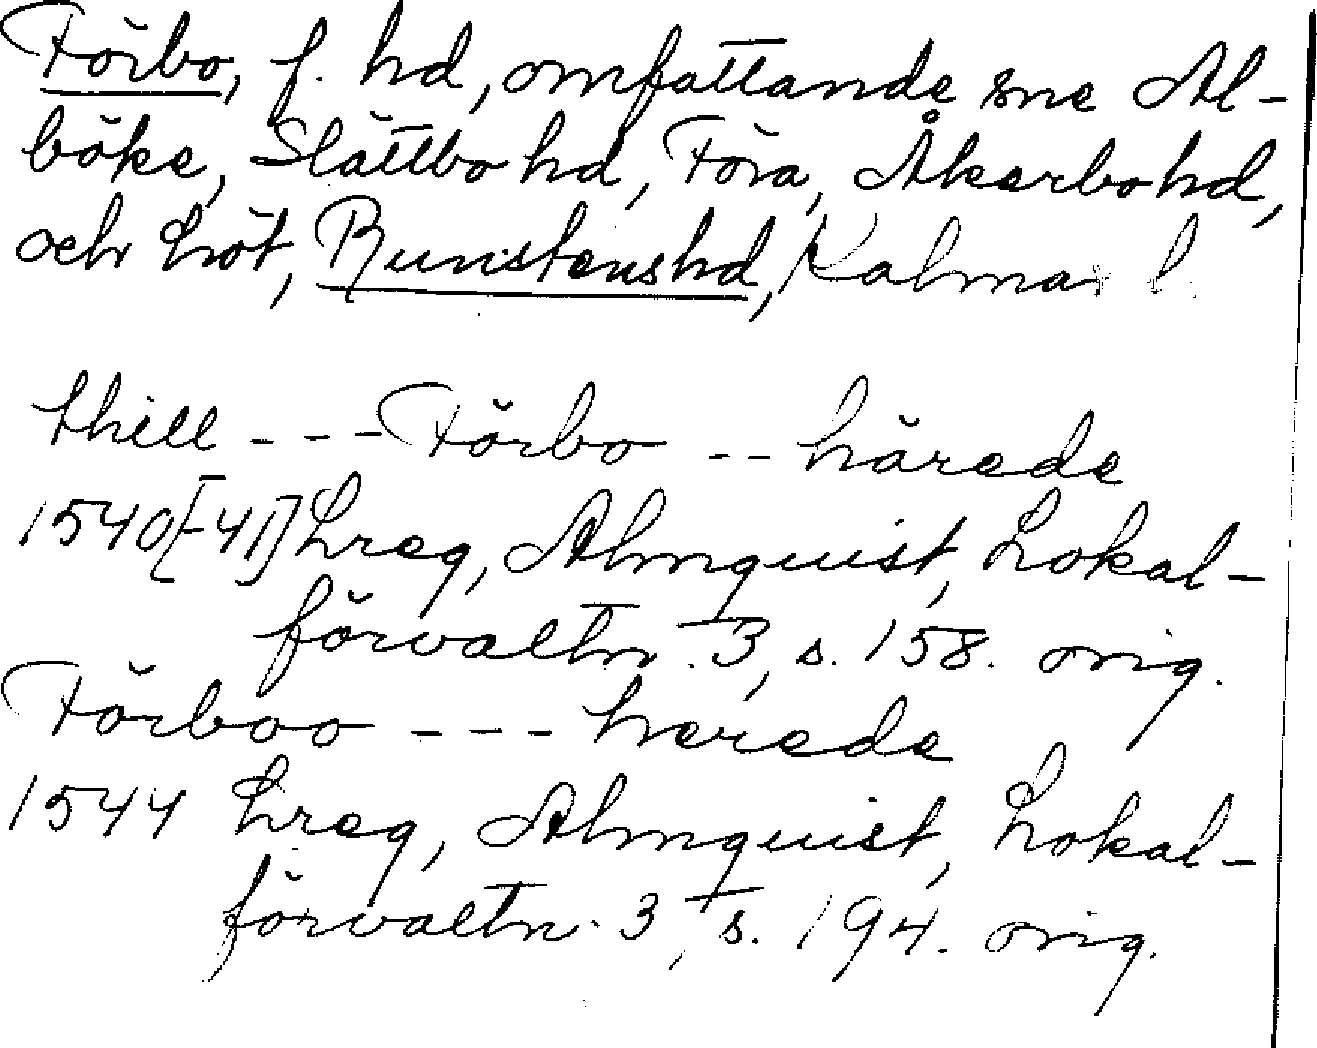 Förbo, f. hd, omfattande sne Al-
böke, Slättbo hd, Föra, Åkerbo hd,
och Löt, Runstens hd, Kalmar l.
thill - - - Förbo - - härede
1540[-41] Lreg, Almquist, Lokal-
förvaltn. 3, s. 158. orig.
Förboo - - - herede
1544 Lreg, Almquist, Lokal-
förvaltn. 3, s. 194. orig.